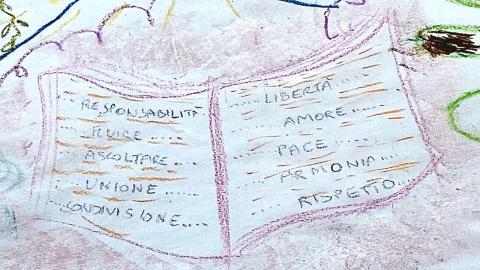 ...RESPONSABILITÀ
...FLUIRE.....
...ASCOLTARE.....
...UNIONE.......
...CONDIVISIONE.....
......LIBERTÀ.....
......AMORE.....
......PACE.....
......ARMONIA.....
......RISPETTO....